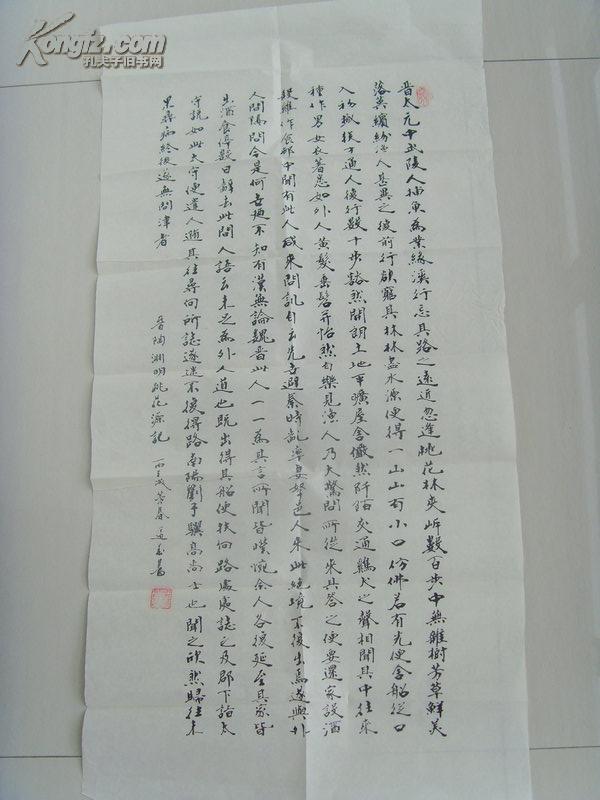 Kongfz.com
孔夫子旧书网
晋太元中武陵人捕魚為業緣溪行忘其路之遠近忽逢桃花林夾岸數百步中無雜樹芳草鮮美
落英繽紛漁人甚異之復前行欲窮其林林盡水源便得一山山有小口仿佛若有光便舍船從口
入初極狹才通人復行數十步豁然開朗土地平曠屋舍儼然阡陌交通雞犬之聲相聞其中往來
種作男女衣著悉如外人黃髮垂髫并怡然自樂見漁人乃大驚問所從來具答之便要還家設酒
殺雞作食邨中聞有此人咸來問訊自云先世避秦時亂率妻孥邑人來此絕境不復出焉遂與外
人間隔問今是何世迺不知有漢無論魏晋此人一一為具言所聞皆嘆惋余人各復延至其家皆
出酒食停數日辭去此間人語云未足為外人道也既出得其船便扶向路處處誌之及郡下詣太
守說如此太守便遣人隨其往尋向所誌遂迷不復得路南陽劉子驥高尚士也聞之欣然歸往未
果尋病終後遂無問津者
晋陶淵明桃花源記 丙戌 春 書